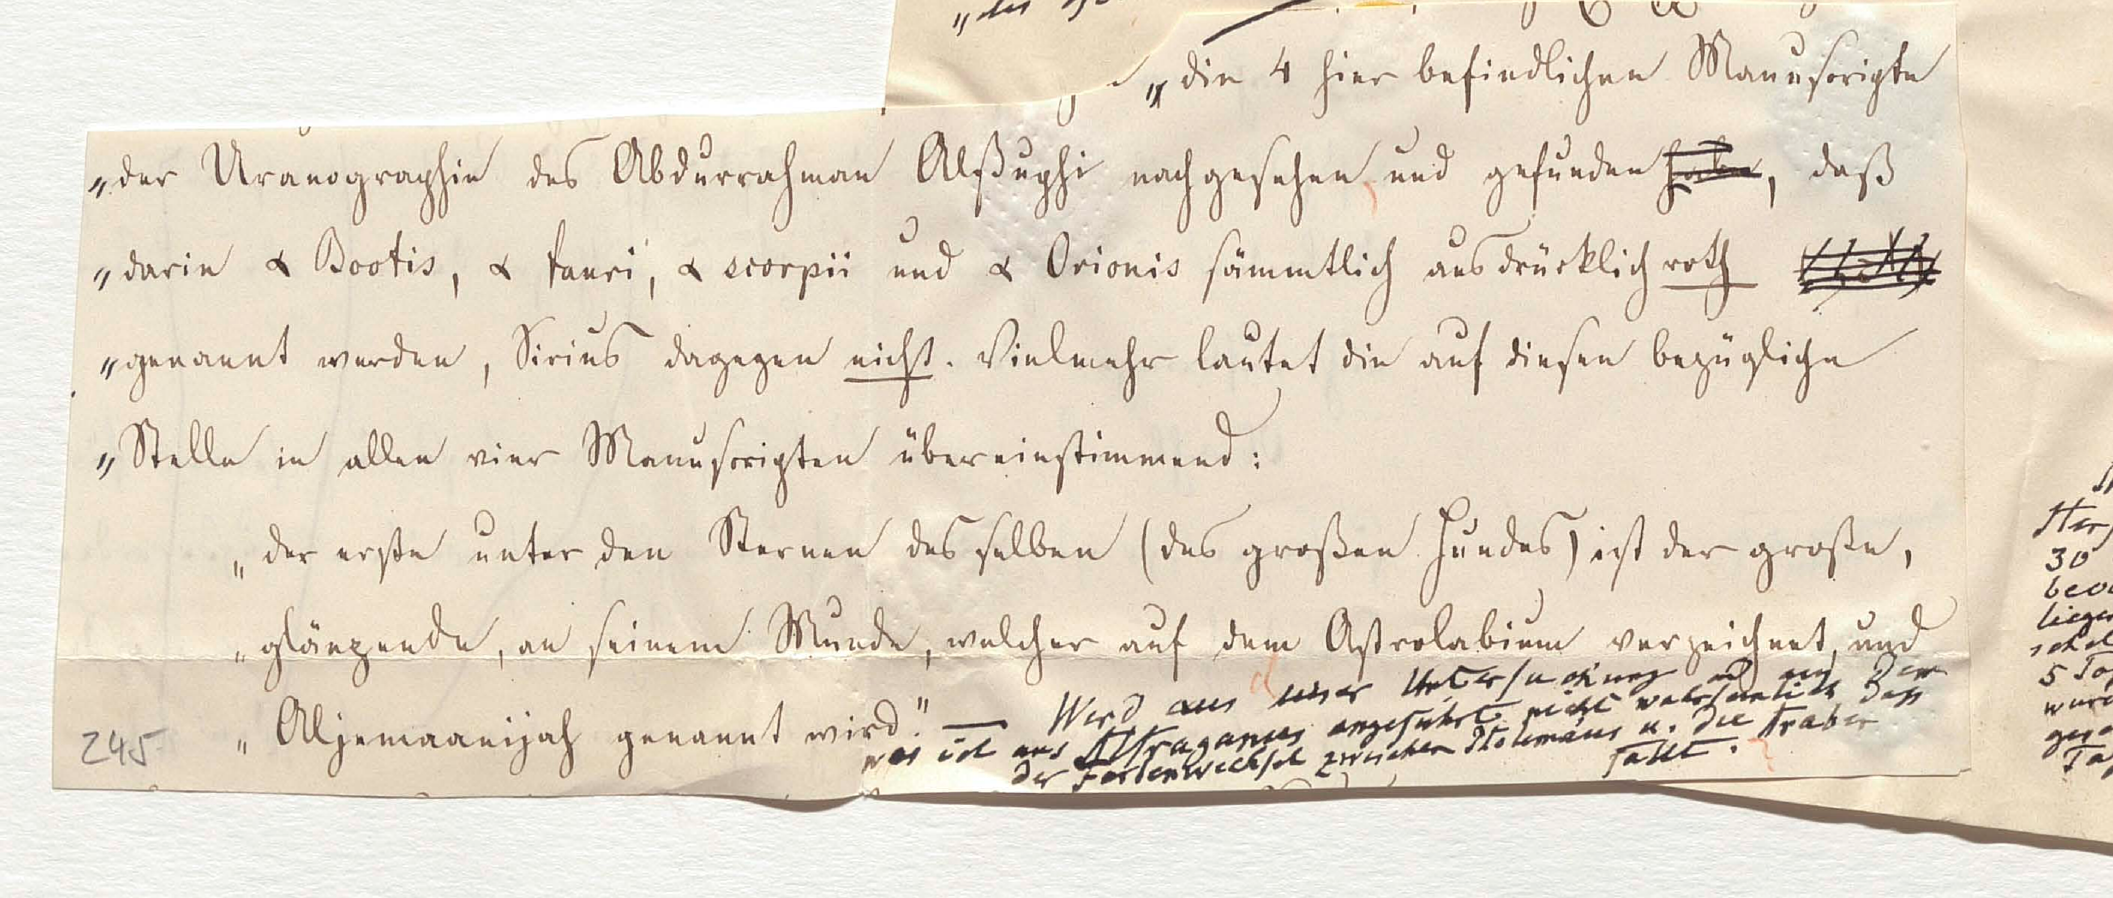 „die 4 hier befindlichen Manuscripte
„der Uranographie des Abdurrahman Alßuphi nachgesehen und gefunden habe, daß
„darin α Bootis, α tauri, α scorpii und α Orionis sämmtlich ausdrücklich roth
„genannt werden, Sirius dagegen nicht. Vielmehr lautet die auf diesen bezügliche
„Stelle in allen vier Manuscripten übereinstimmend:
„der erste unter den Sternen desselben (des großen Hundes) ist der große,
„glänzende, an seinem Munde, welcher auf dem Astrolabium verzeichnet und
„Aljemaanijah genannt wird.“ — Wird aus
was ist aus Alfraganus angeführt nicht wahrscheinlich dass
der Farbenwechsel zwischen Ptolemäus u. die Araber
fällt.
245
30
5